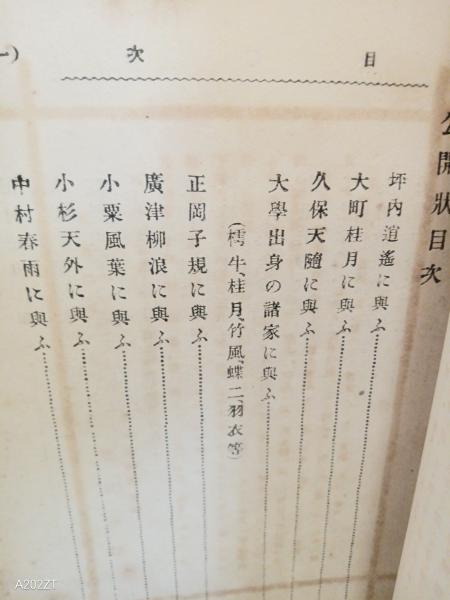 目次
(一)
公開狀目次
坪內逍遙に與ふ
大町桂月に與ふ
久保天隨に與ふ
大學出身の諸家に與ふ
(樗牛、桂月、竹風、蝶二、羽衣等)
正岡子規に與ふ
廣津柳浪に與ふ
小栗風葉に與ふ
小杉天外に與ふ
中村春雨に與ふ
A202ZT